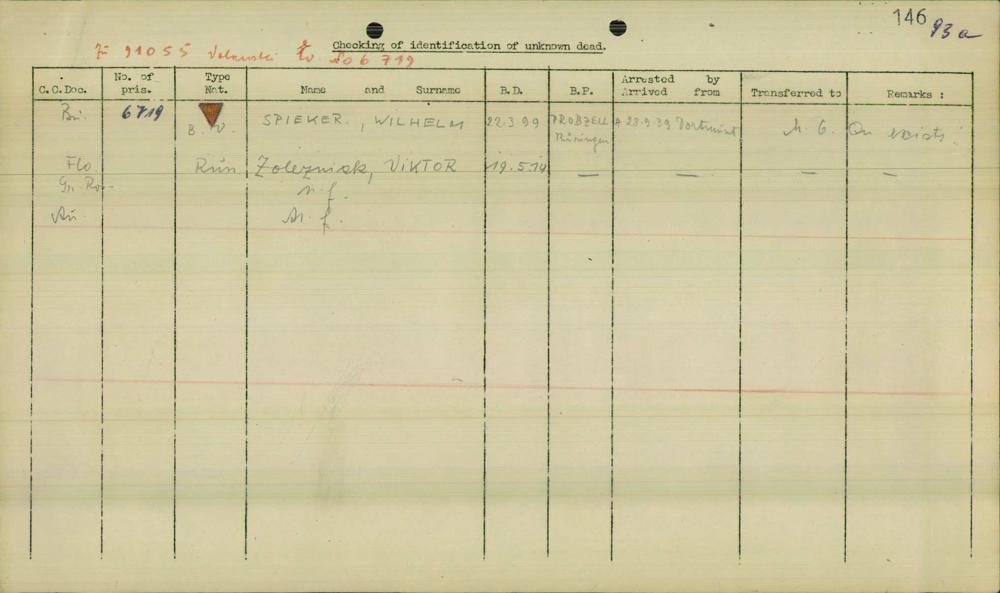 146 93a
Checking of identification of unknown dead.
91055
C.C.Doc. No. of pris. Type Nat. Name and Surname B.D. B.P. Arrested by Arrived from Transferred to Remarks :
Bu. 6719 B.V. SPIEKER, WILHELM 22.3.99 PROBZELL 23.9.39 Dortmund exists
Flo. Russ Zolezniak, VIKTOR 19.5.14 — — — —
Gr. Ro. n. f.
Au. n. f.